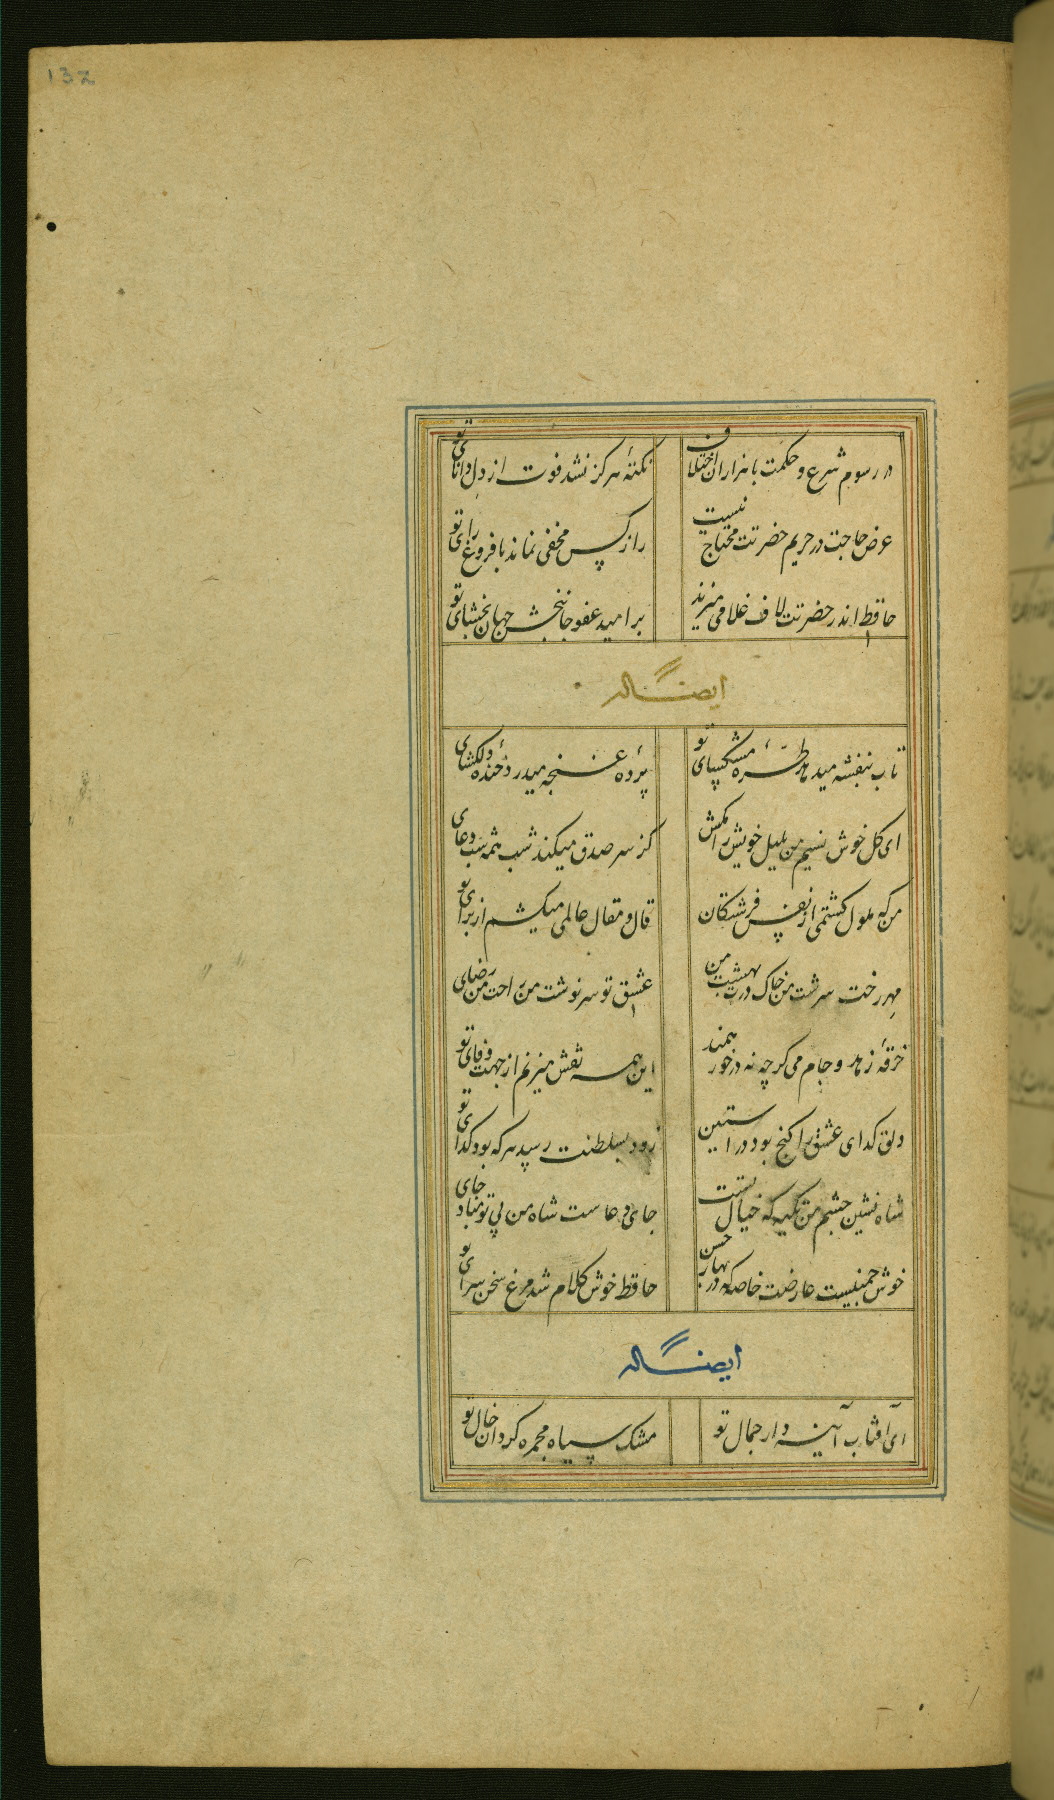 132
در رسوم شرع و حکمت با هزاران اختلاف
نکتهٔ هرگز نشد فوت از دل دانای تو
عرض حاجت در حریم حضرتت محتاج نیست
راز کس مخفی نماند با فروغ رای تو
حافظ اندر حضرتت لاف غلامی میزند
بر امید عفو جانبخش جهان بخشای تو
ایضاً له
تاب بنفشه میدهد طرّهٔ مشکسای تو
پردهٔ غنجه میدرد خندهٔ دلکشای
ای کل خوش نسیم من بلبل خویش را مکش
کز سر صدق میکند شب همه شب دعای
من که ملول کشتمی از نفس فرشتکان
قال و مقال عالمی میکشم از برای تو
مهر رخت سرشت من خاک درت بهشت من
عشق تو سرنوشت من راحت من رضای
خرقهٔ زهد و جام می کرچه نه در خور همند
این همه نقش میزنم از جهت وفای تو
دلق کدای عشق را کنج بود در استین
زود بسلطنت رسد هر که بود کدای تو
شاه نشین چشم من تکیه که خیال تست
جای دعاست شاه من بی تو مباد جای
خوش چمنیست عارضت خاصه که در بهار حسن
حافظ خوش کلام شد مرغ سخن سرای تو
ایضاً له
ای آفتاب آینه دار جمال تو
مشک سیاه مجمره کردان خال تو